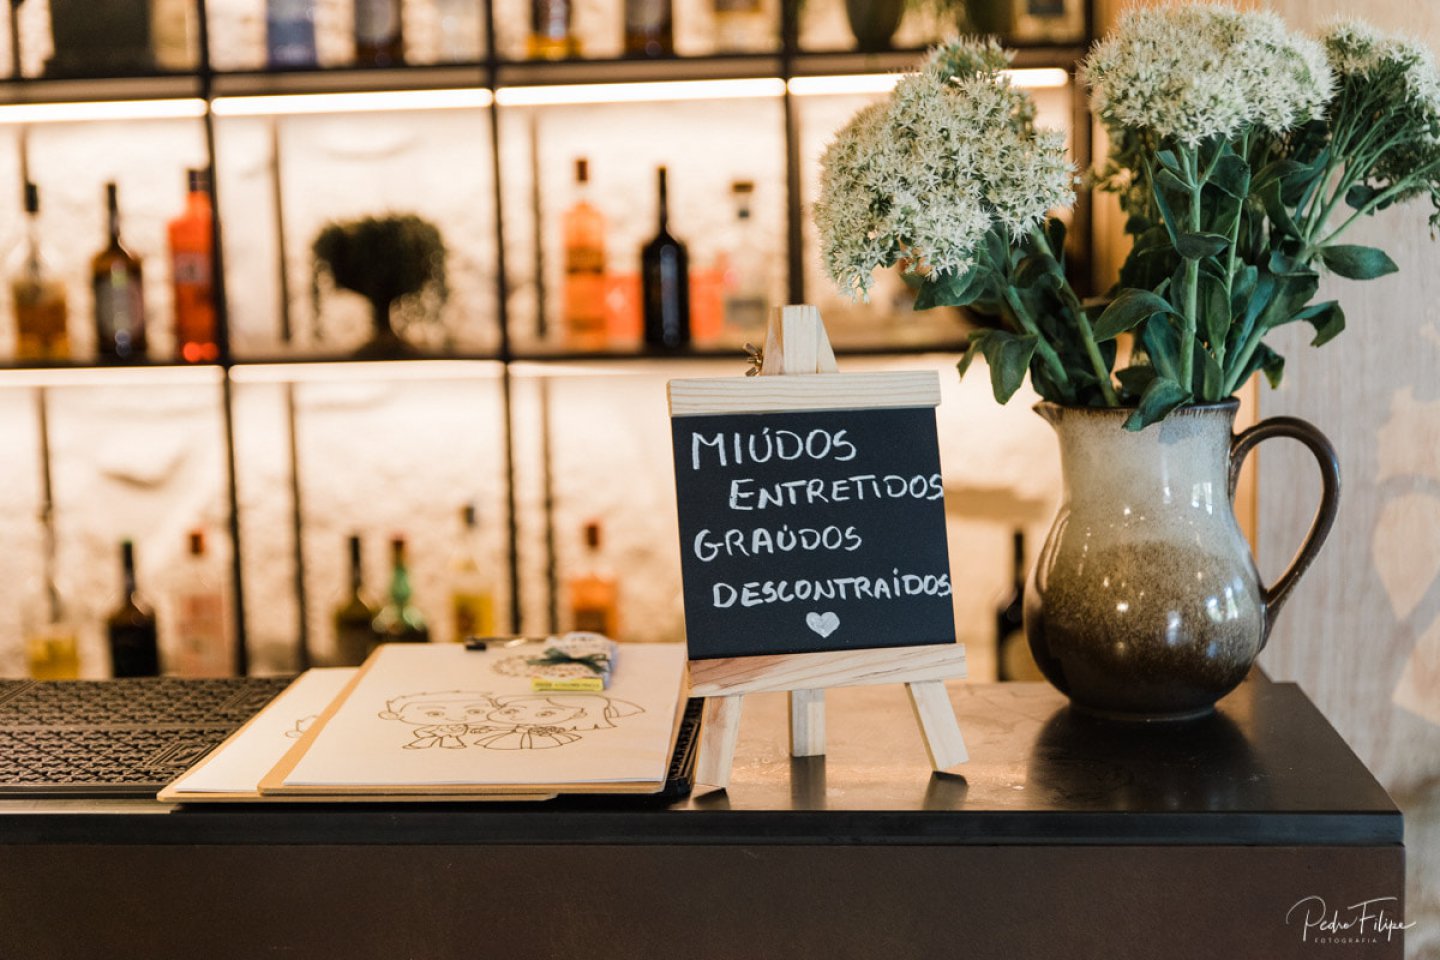 MIÚDOS
ENTRETIDOS
GRAÚDOS
DESCONTRAÍDOS
Pedro Filipe
FOTOGRAFIA